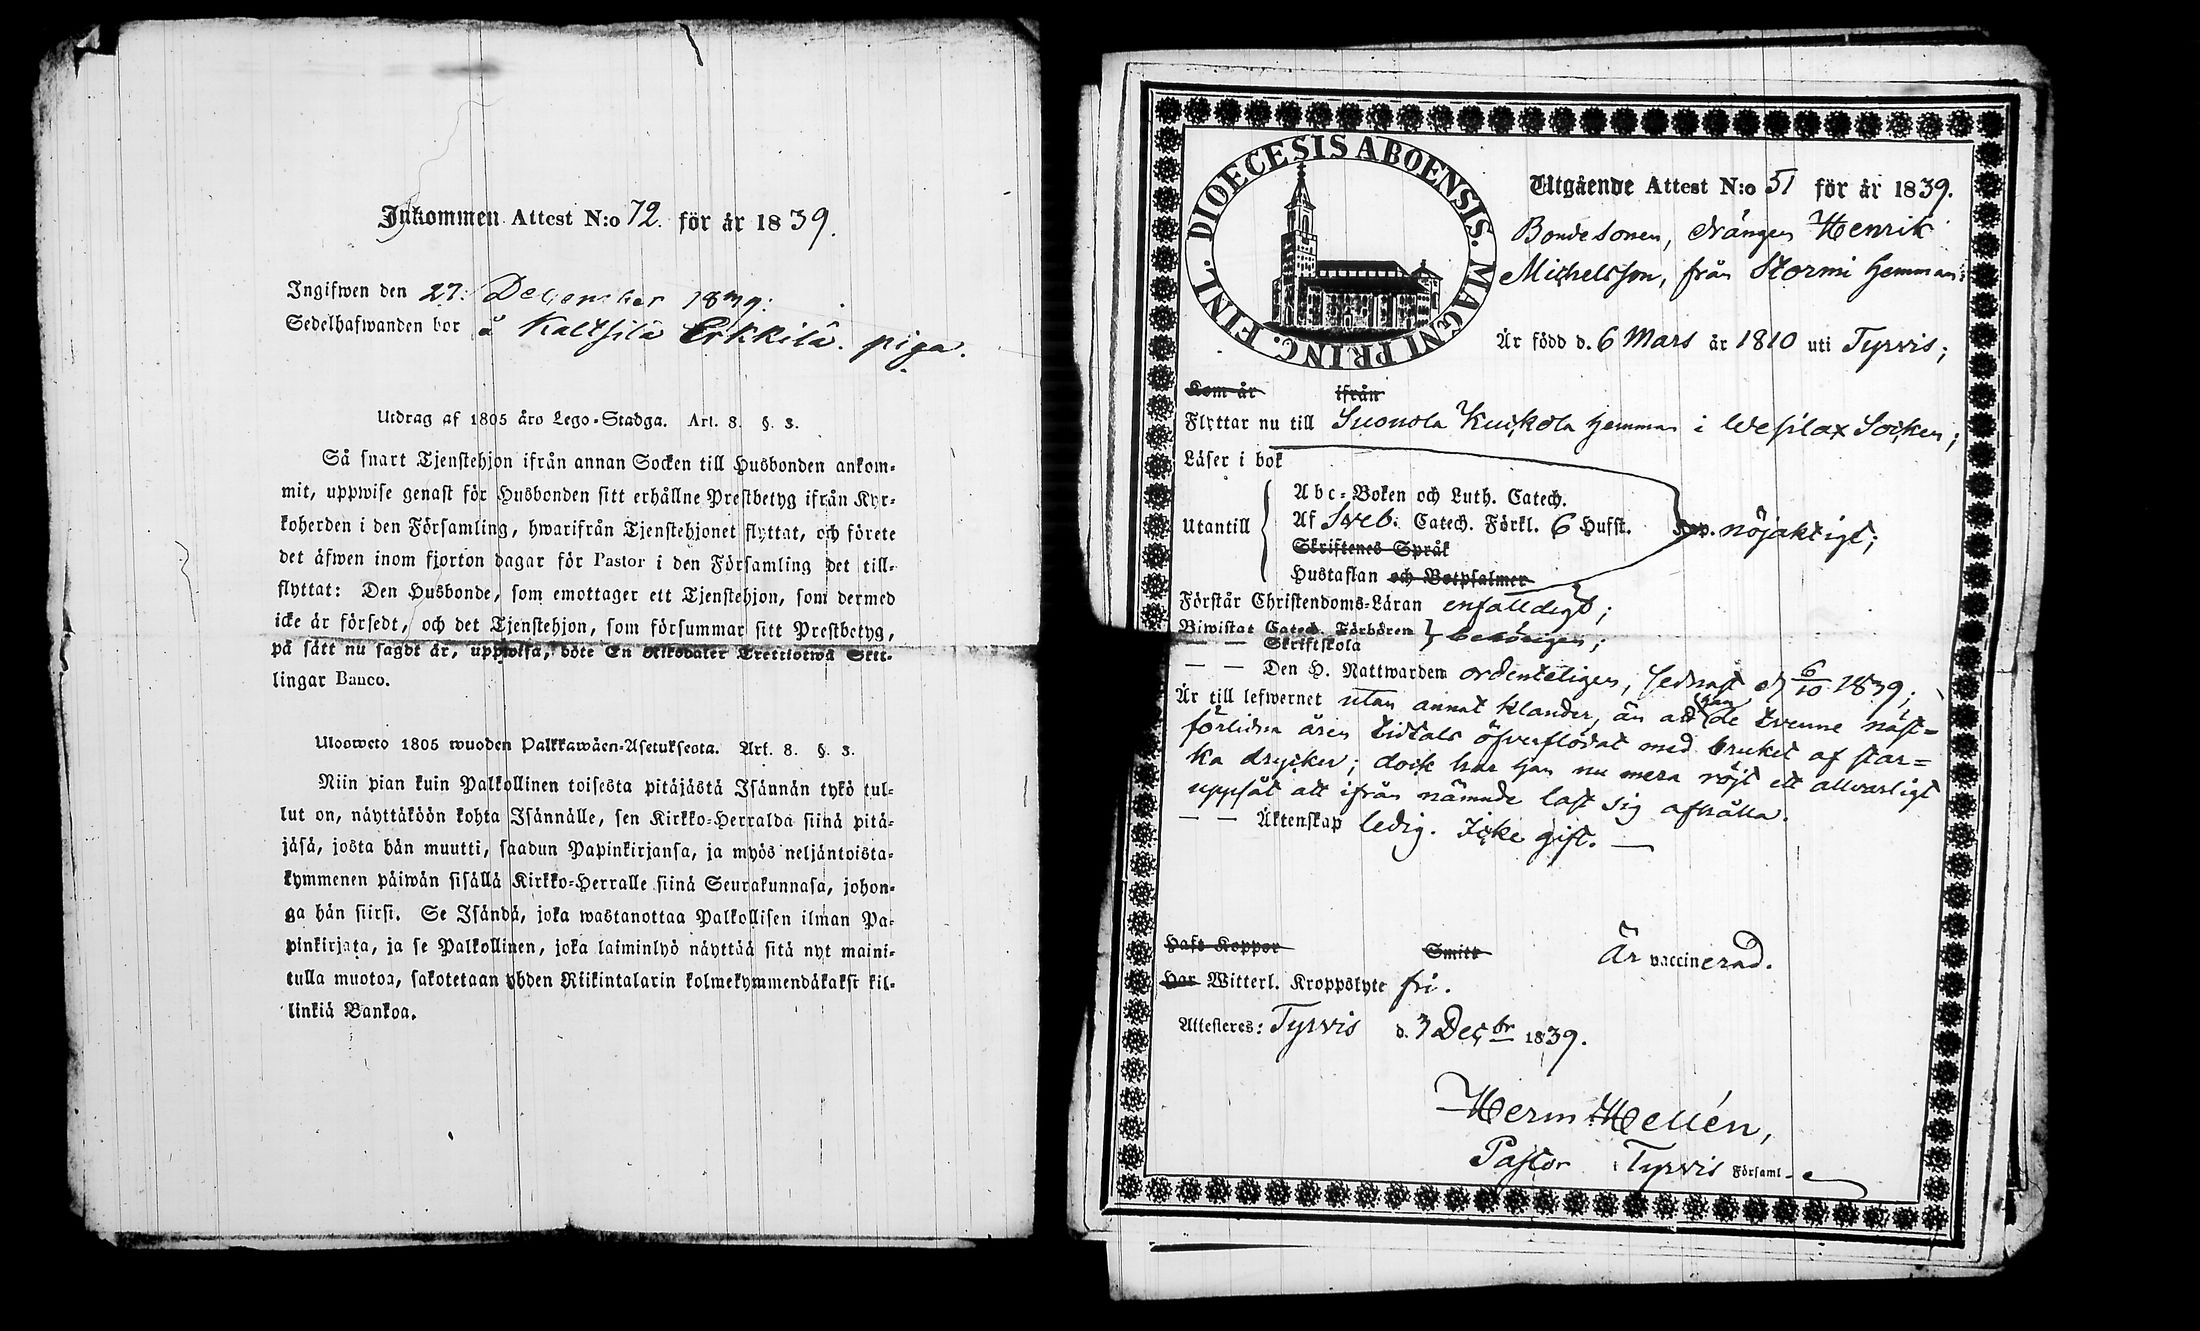 Inkommen Attest N:o 72. för år 1839.
Ingifwen den 27. December 1839.
Sedelhafwanden bor å Kaltsila Erkkilä. piga.
Utdrag af 1805 års Lego-Stadga. Art. 8. §. 3.
Så snart Tjenstehjon ifrån annan Socken till Husbonden ankom-
mit, uppwise genast för Husbonden sitt erhållne Prestbetyg ifrån Kyr-
koherden i den Församling, hwarifrån Tjenstehjonet flyttat, och förete
det äfwen inom fjorton dagar för Pastor i den Församling det till-
flyttat: Den Husbonde, som emottager ett Tjenstehjon, som dermed
icke är försedt, och det Tjenstehjon, som försummar sitt Prestbetyg,
på sätt nu sagdt är, uppwisa, böte En Riksdaler Trettiotwå Skil-
lingar Banco.
Uloosweto 1805 wuoden Palkkawäen-Asetuksesta. Art. 8. §. 3.
Niin pian kuin Palkollinen toisesta pitäjästä Isännän tykö tul-
lut on, näyttäköön kohta Isännälle, sen Kirkko-Herralda siinä pitä-
jäsä, josta hän muutti, saadun Papinkirjansa, ja myös neljäntoista-
kymmenen päiwän sisällä Kirkko-Herralle siinä Seurakunnasa, johon-
ga hän siirsi. Se Isändä, joka wastanottaa Palkollisen ilman Pa-
pinkirjata, ja se Palkollinen, joka laiminlyö näyttää sitä nyt maini-
tulla muotoa, sakotetaan yhden Riikintalarin kolmekymmendäkaksi kil-
linkiä Bankoa.
DIOECESIS ABOENSIS. MAGNI PRINC. FINL.
Utgående Attest N:o 51 för år 1839.
Bondesonen, drängen Henrik
Michelsson, från Stormi hemman;
Är född d. 6 Mars år 1810 uti Tyrvis;
Kom år ifrån
Flyttar nu till Suonola Kuckola hemman i Wesilax Socken;
Läser i bok
Abc-Boken och Luth. Catech.
Utantill Af Sveb. Catech. Förkl. 6 Hufst. nöjaktigt;
Skriftenes Språk
Hustaflan och Botpsalmer
Förstår Christendoms-Läran enfalldigt;
Biwistat Catech. Förhören
— — Skriftskola behörigen;
— — Den H. Nattwarden ordenteligen, sednast d. 6/10 1839;
Är till lefwernet utan annat klander, än att han de tvenne näst=
förlidna åren tidtals öfverflödat med bruket af star=
ka drycker; dock har han nu mera röjt ett allvarligt
uppsåt att ifrån nämnde last sig afhålla.
— — Äktenskap ledig. Icke gift. —
Haft Koppor Smitt Är vaccinerad.
Har Witterl. Kroppslyte fri.
Attesteres: Tyrvis d. 3 Decbr 1839.
Herm Hellén,
Pastor i Tyrvis Församl.